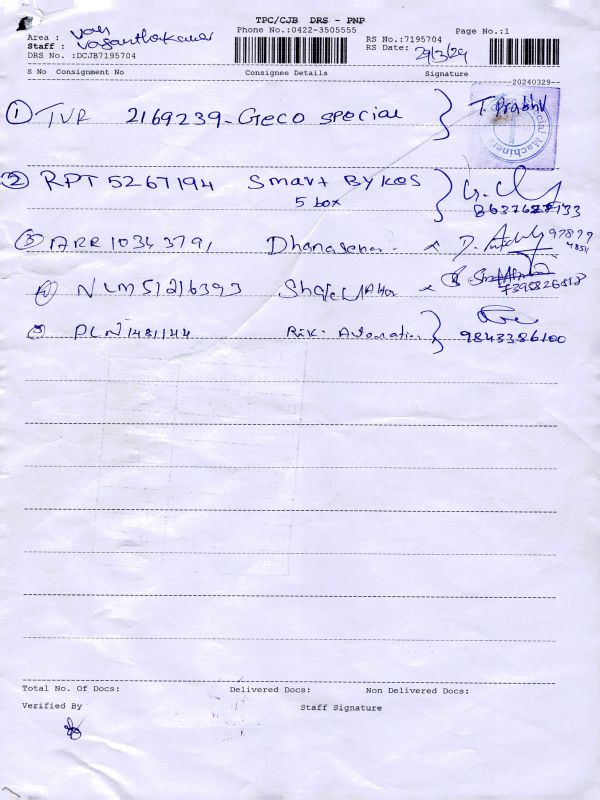 TPC/CJB DRS - PNP
Area : van Phone No.:0422-3505555 RS No.:7195704 Page No.:1
Staff : Vasanthakumar RS Date: 29/3/24
DRS No. :DCJB7195704
S No Consignment No Consignee Details Signature
20240329
1 TVR 2169239 - Geco special T. Prabhu
2 RPT 5267194 Smart Bykes
5 box 8637627133
3 ARR 10343791 Dhanasekar 97879
4 NLM 51216393
7395826818
5 PLN 1481144 R.K. Automation 9843386100
Total No. Of Docs: Delivered Docs: Non Delivered Docs:
Verified By Staff Signature